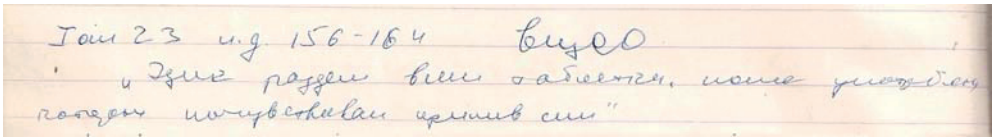 Том 23 и.д. 156-164 видео
"Эдик раздал всем таблетки, после употребления
которых почувствовал прилив сил"